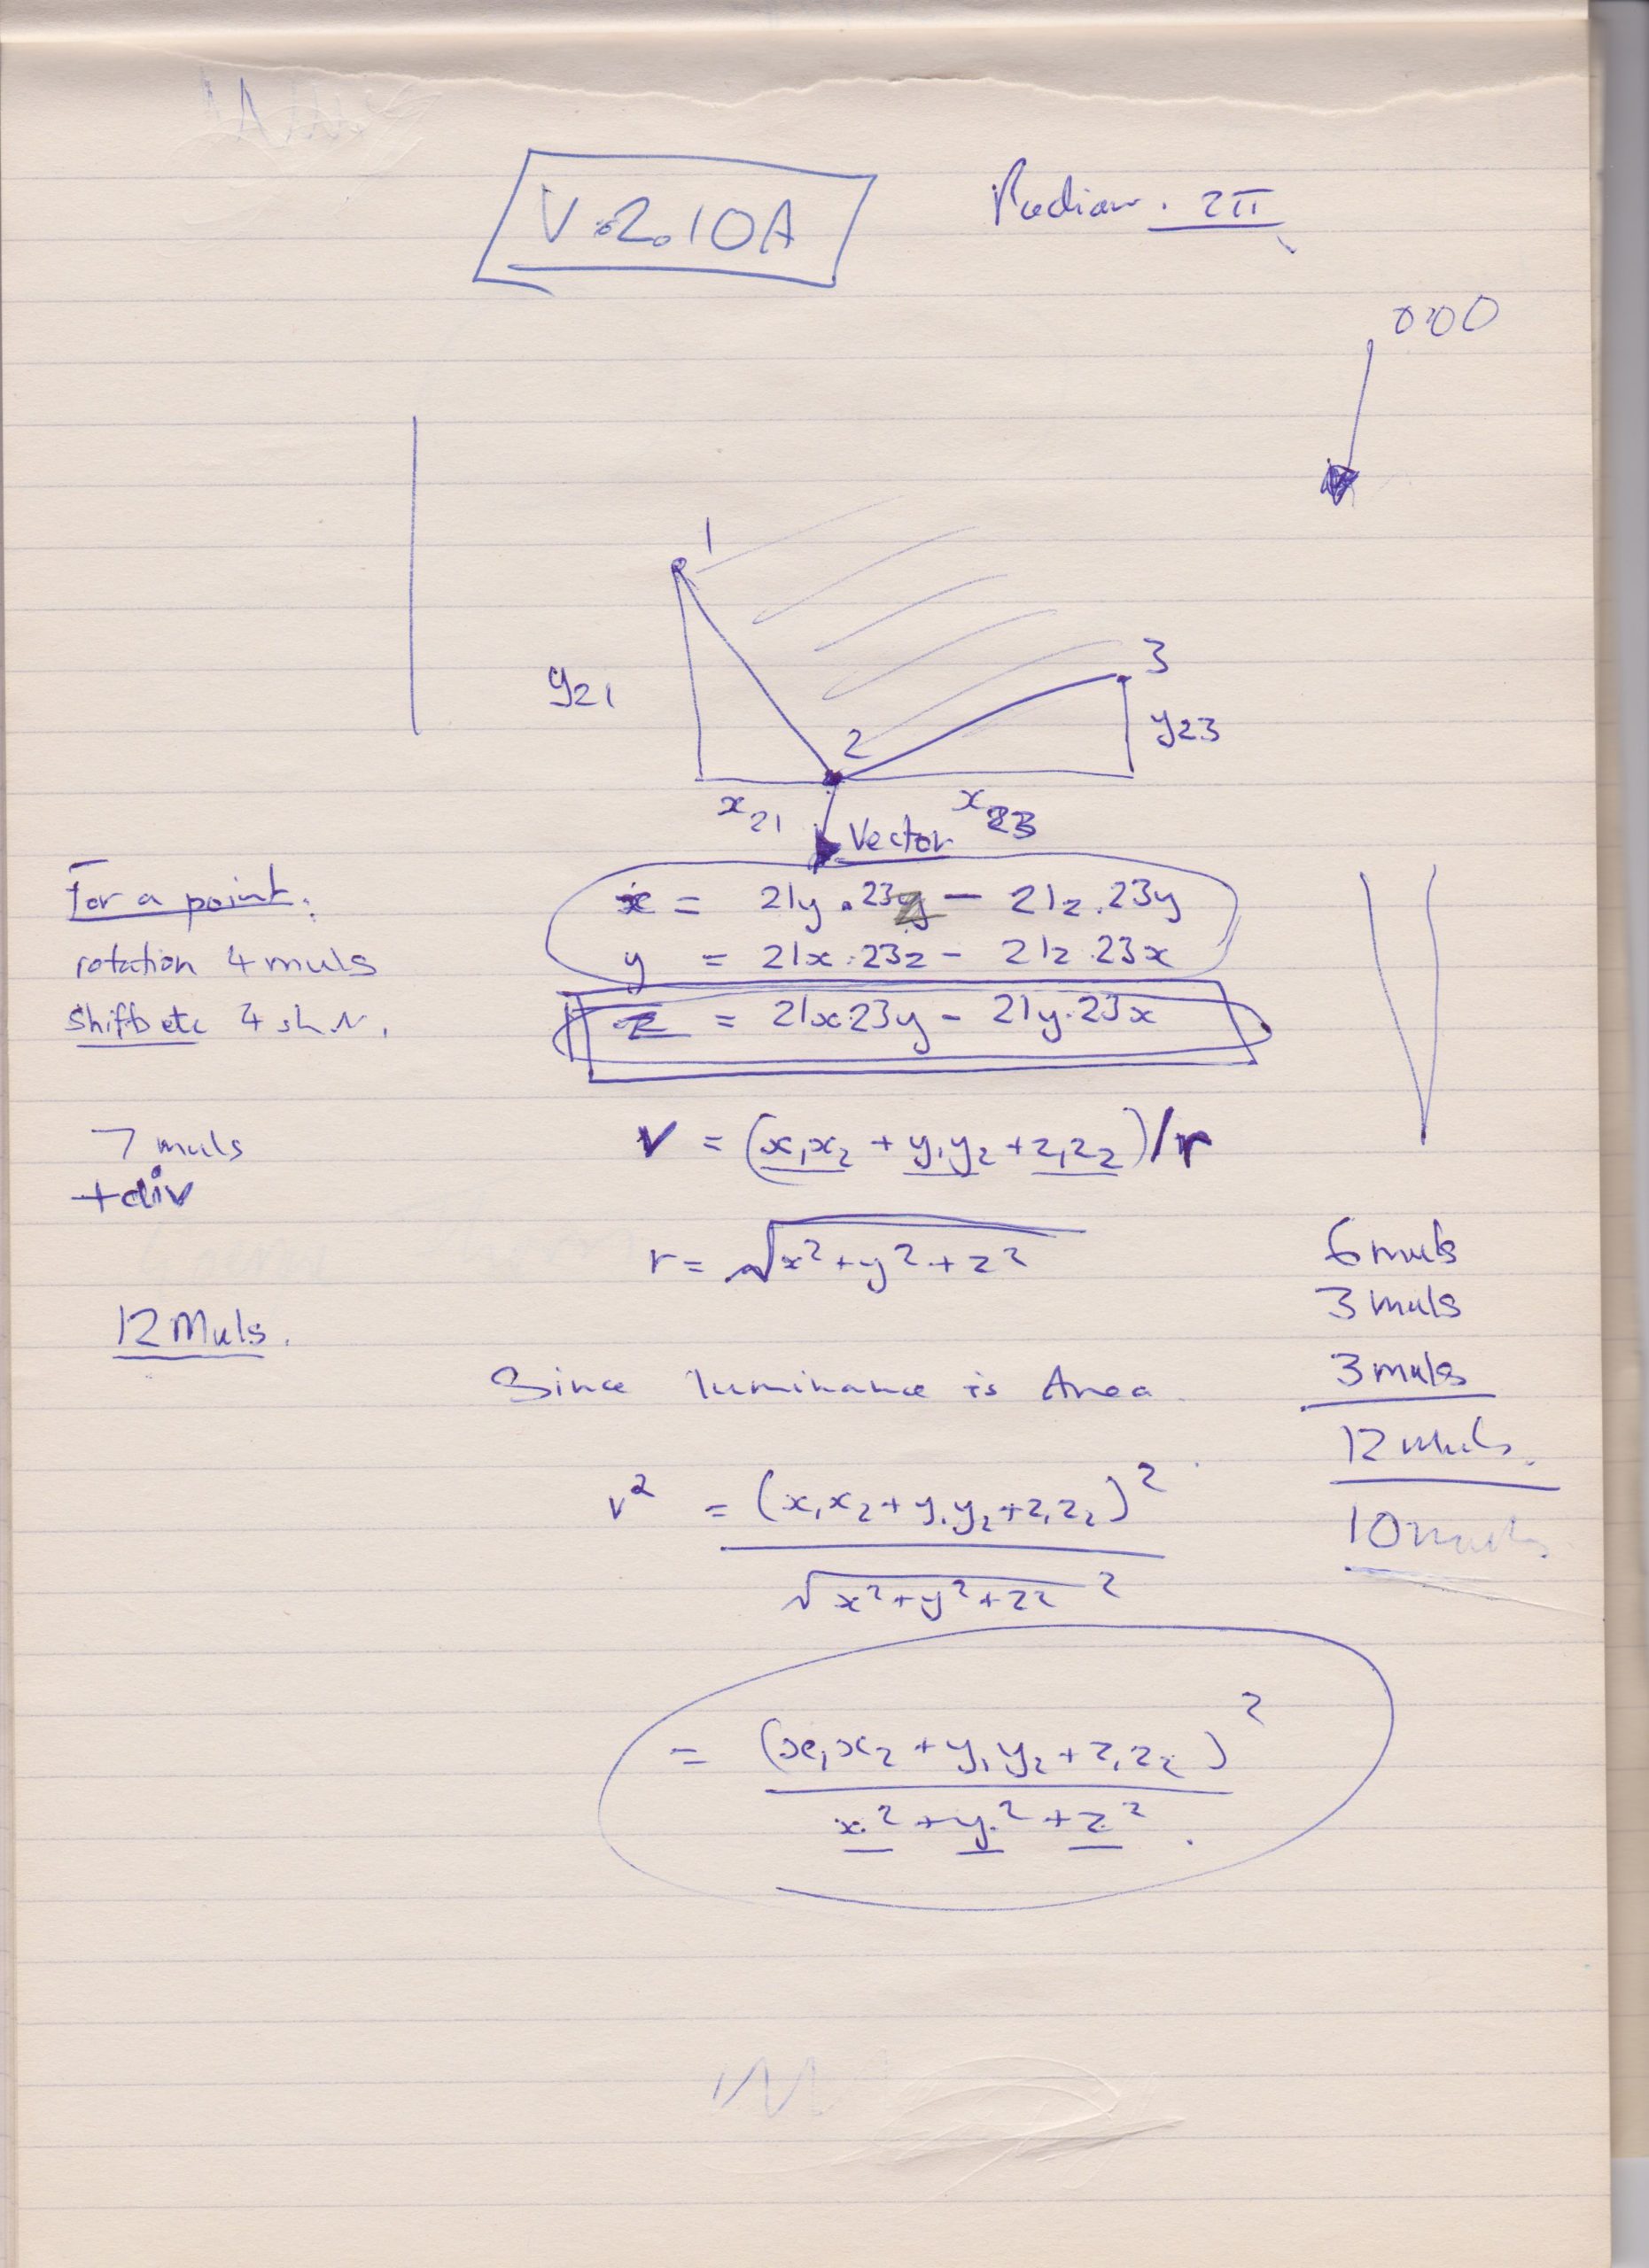 V.2.10A
Radian. 2π
0,0,0
1
3
y21
y23
2
x21
x23
Vector
For a point:
rotation 4 muls
shifts etc
ẋ = 21y.23z - 21z.23y
y = 21x.23z - 21z.23x
z = 21x23y - 21y.23x
7 muls
+div
12 Muls.
v = (x₁x₂ + y₁y₂ + z₁z₂)/r
r = √x²+y²+z²
6 muls
3 muls
3 muls
12 muls.
10 muls
Since luminance is Area
v² = (x₁x₂ + y₁y₂ + z₁z₂)²
√x²+y²+z² ²
= (x₁x₂ + y₁y₂ + z₁z₂)²
x² + y² + z².